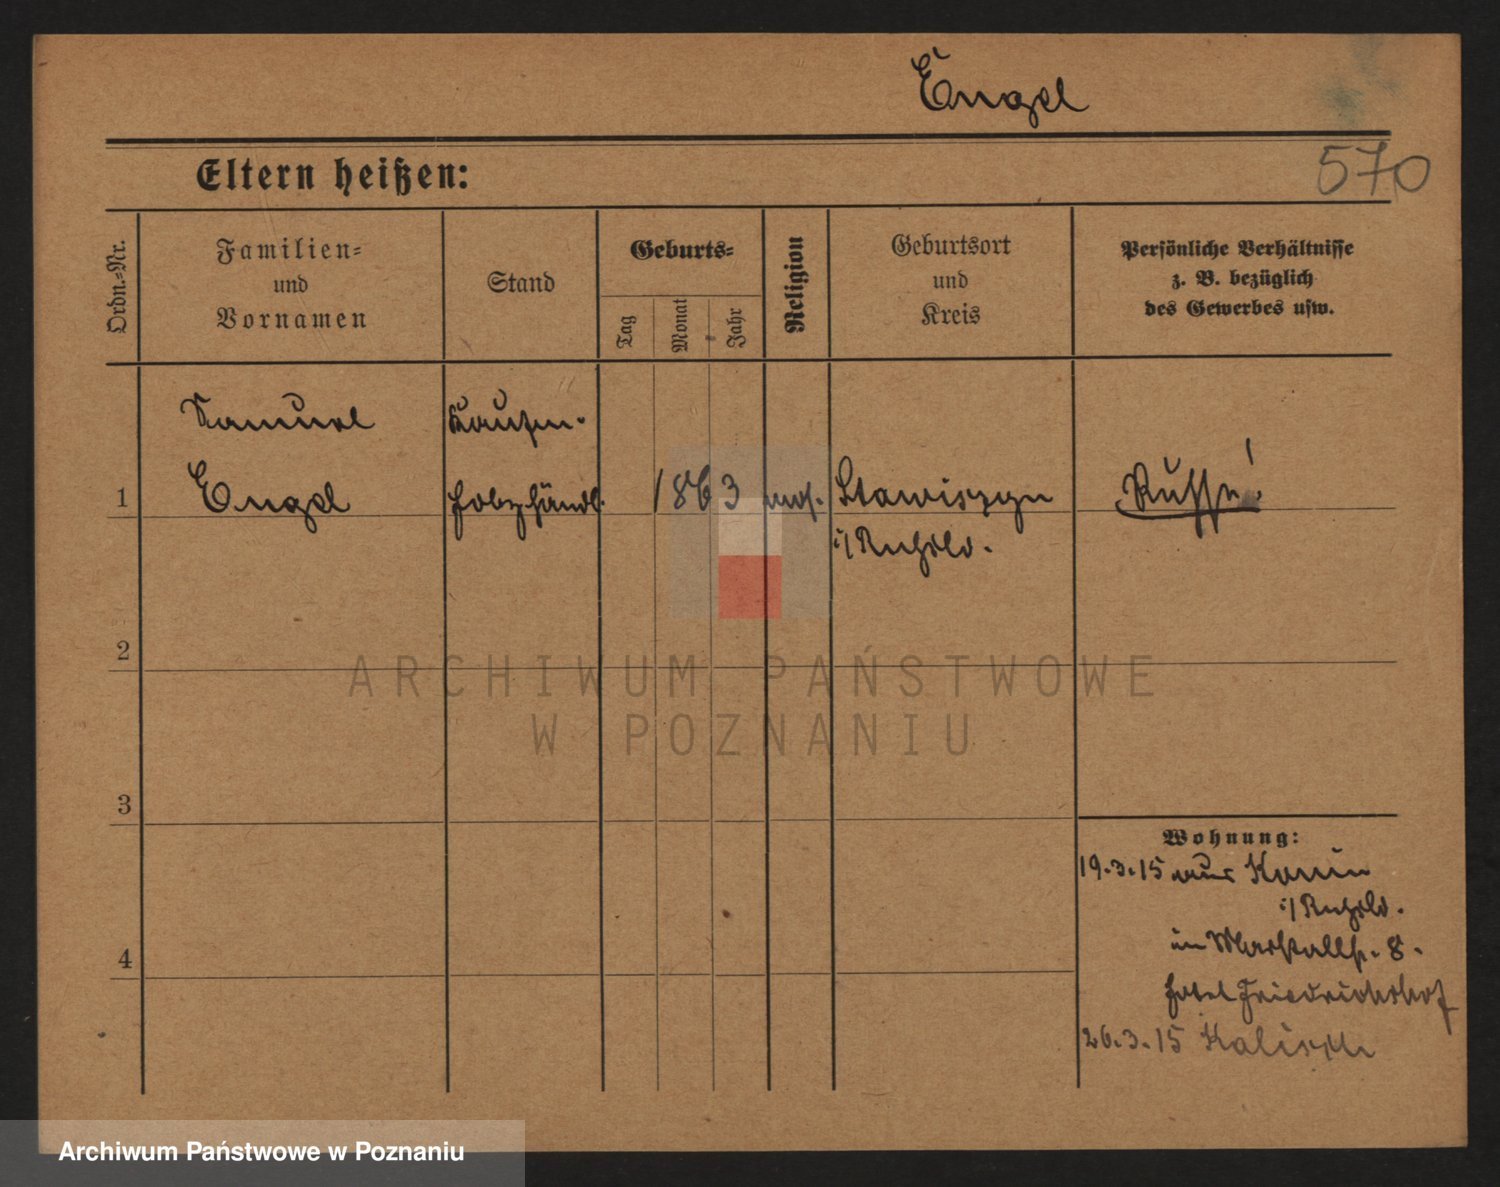 Engel
570
Eltern heißen:
Ordn.-Nr.
Familien-
und
Vornamen
Stand
Geburts-
Tag
Monat
Jahr
Religion
Geburtsort
und
Kreis
Persönliche Verhältnisse
z. B. bezüglich
des Gewerbes usw.
Samuel
Engel
Kaufm.
Holzhändl.
1863
mos.
Stawiszyn
i/Rußld.
Russe!
1
2
3
4
Wohnung:
19.3.15 aus Konin
i/Rußld.
in Marstallstr. 8.
Hotel Friedrichshof
26.3.15 Kalisch
ARCHIWUM PAŃSTWOWE
W POZNANIU
Archiwum Państwowe w Poznaniu